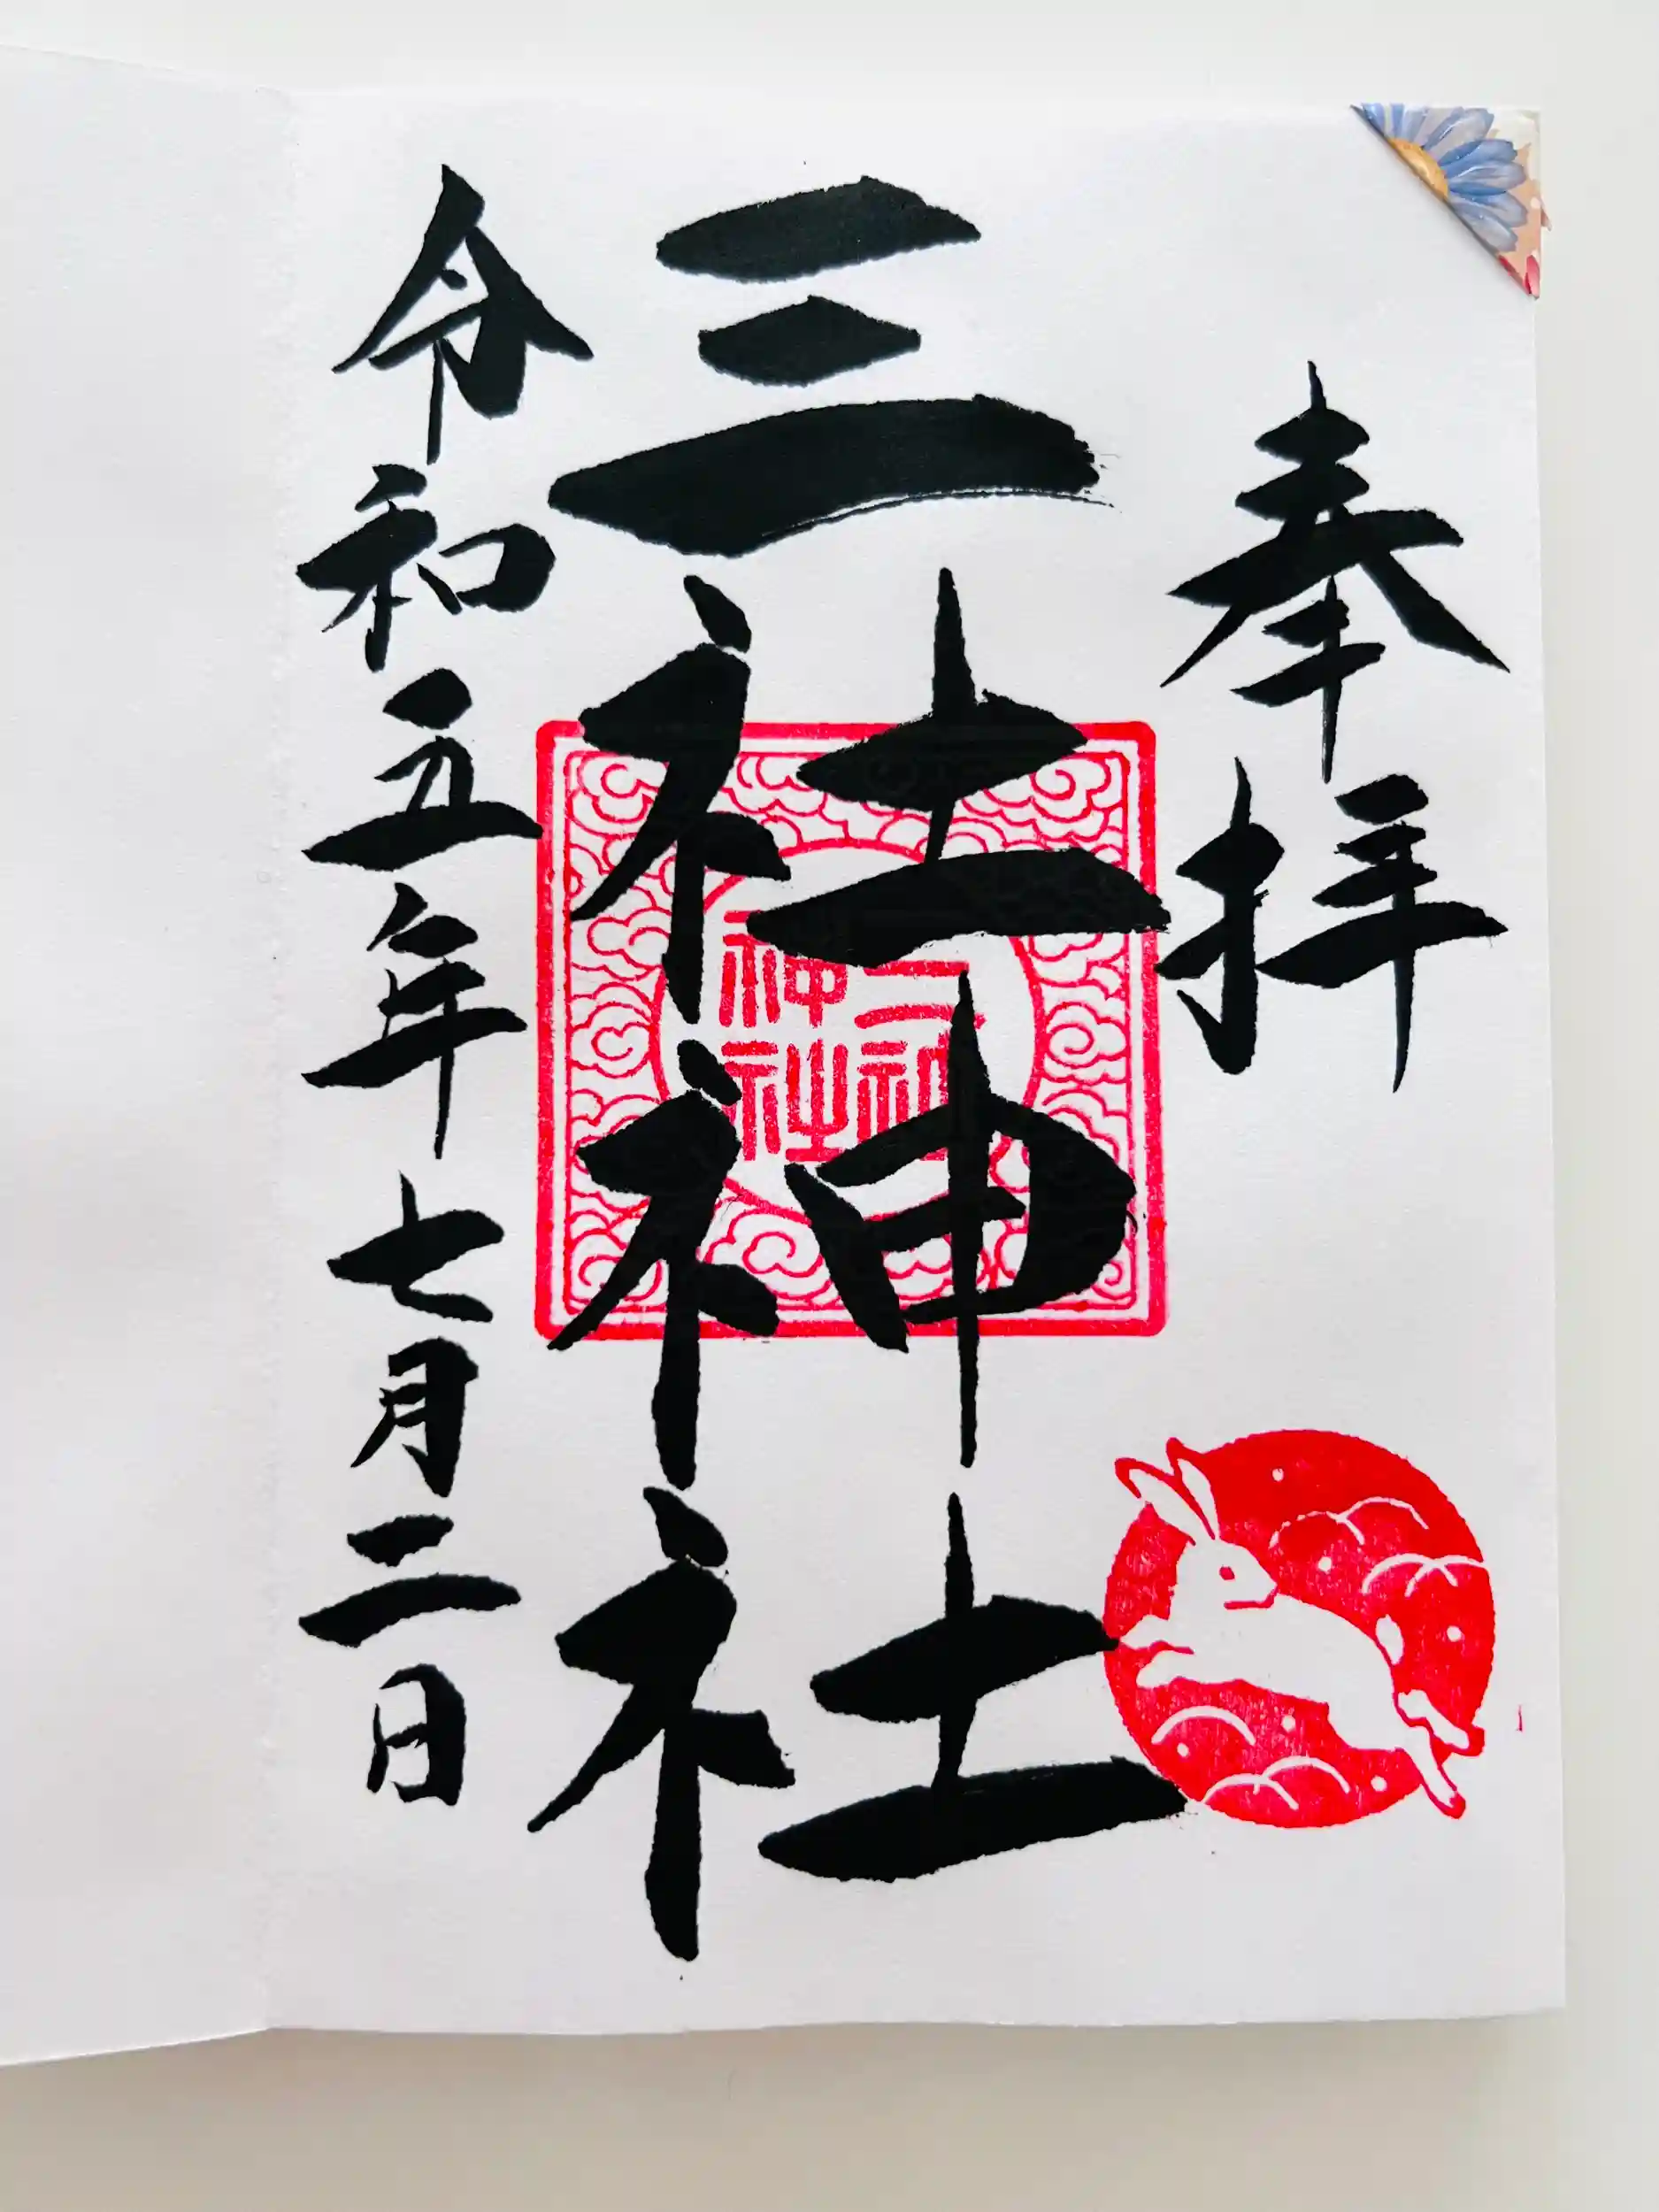 奉拝
三社神社
令和五年七月二日
三社神社